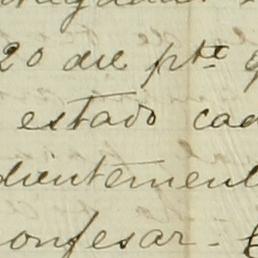 20 de pte
estado cad
dientement
onfesar.